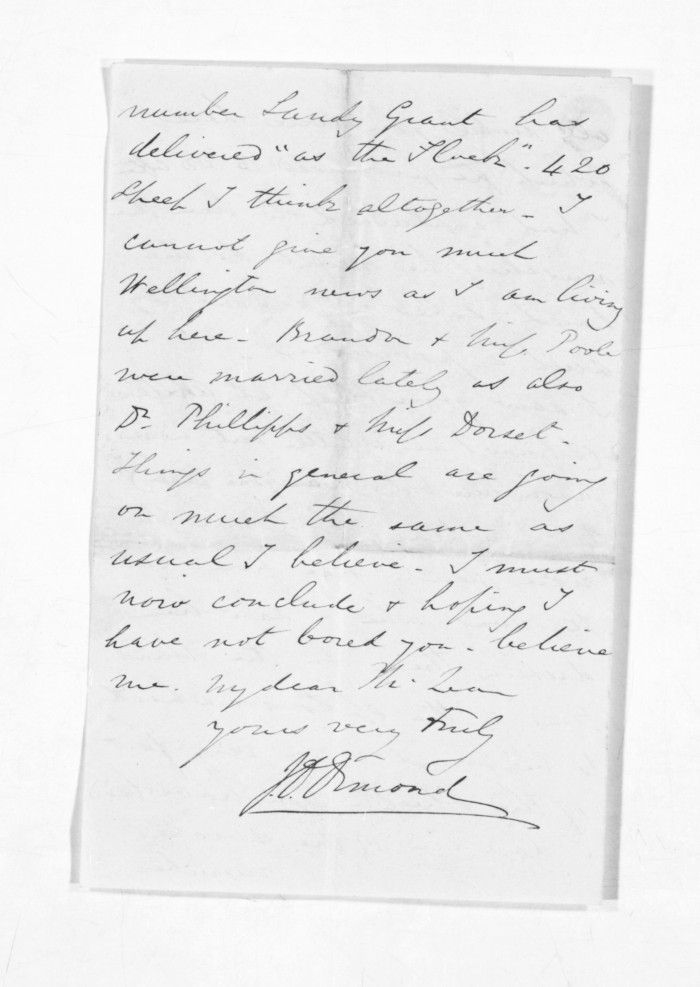 number Sandy Grant has
delivered "as the Flock". 420
Sheep I think altogether - I
cannot give you much
Wellington news as I am living
up here - Brandon & Miss Poole
were married lately as also
Dr. Phillipps & Miss Dorset -
Things in general are going
on much the same as
usual I believe - I must
now conclude & hoping I
have not bored you - believe
me. My dear McLean
yours very truly
J.D. Ormond